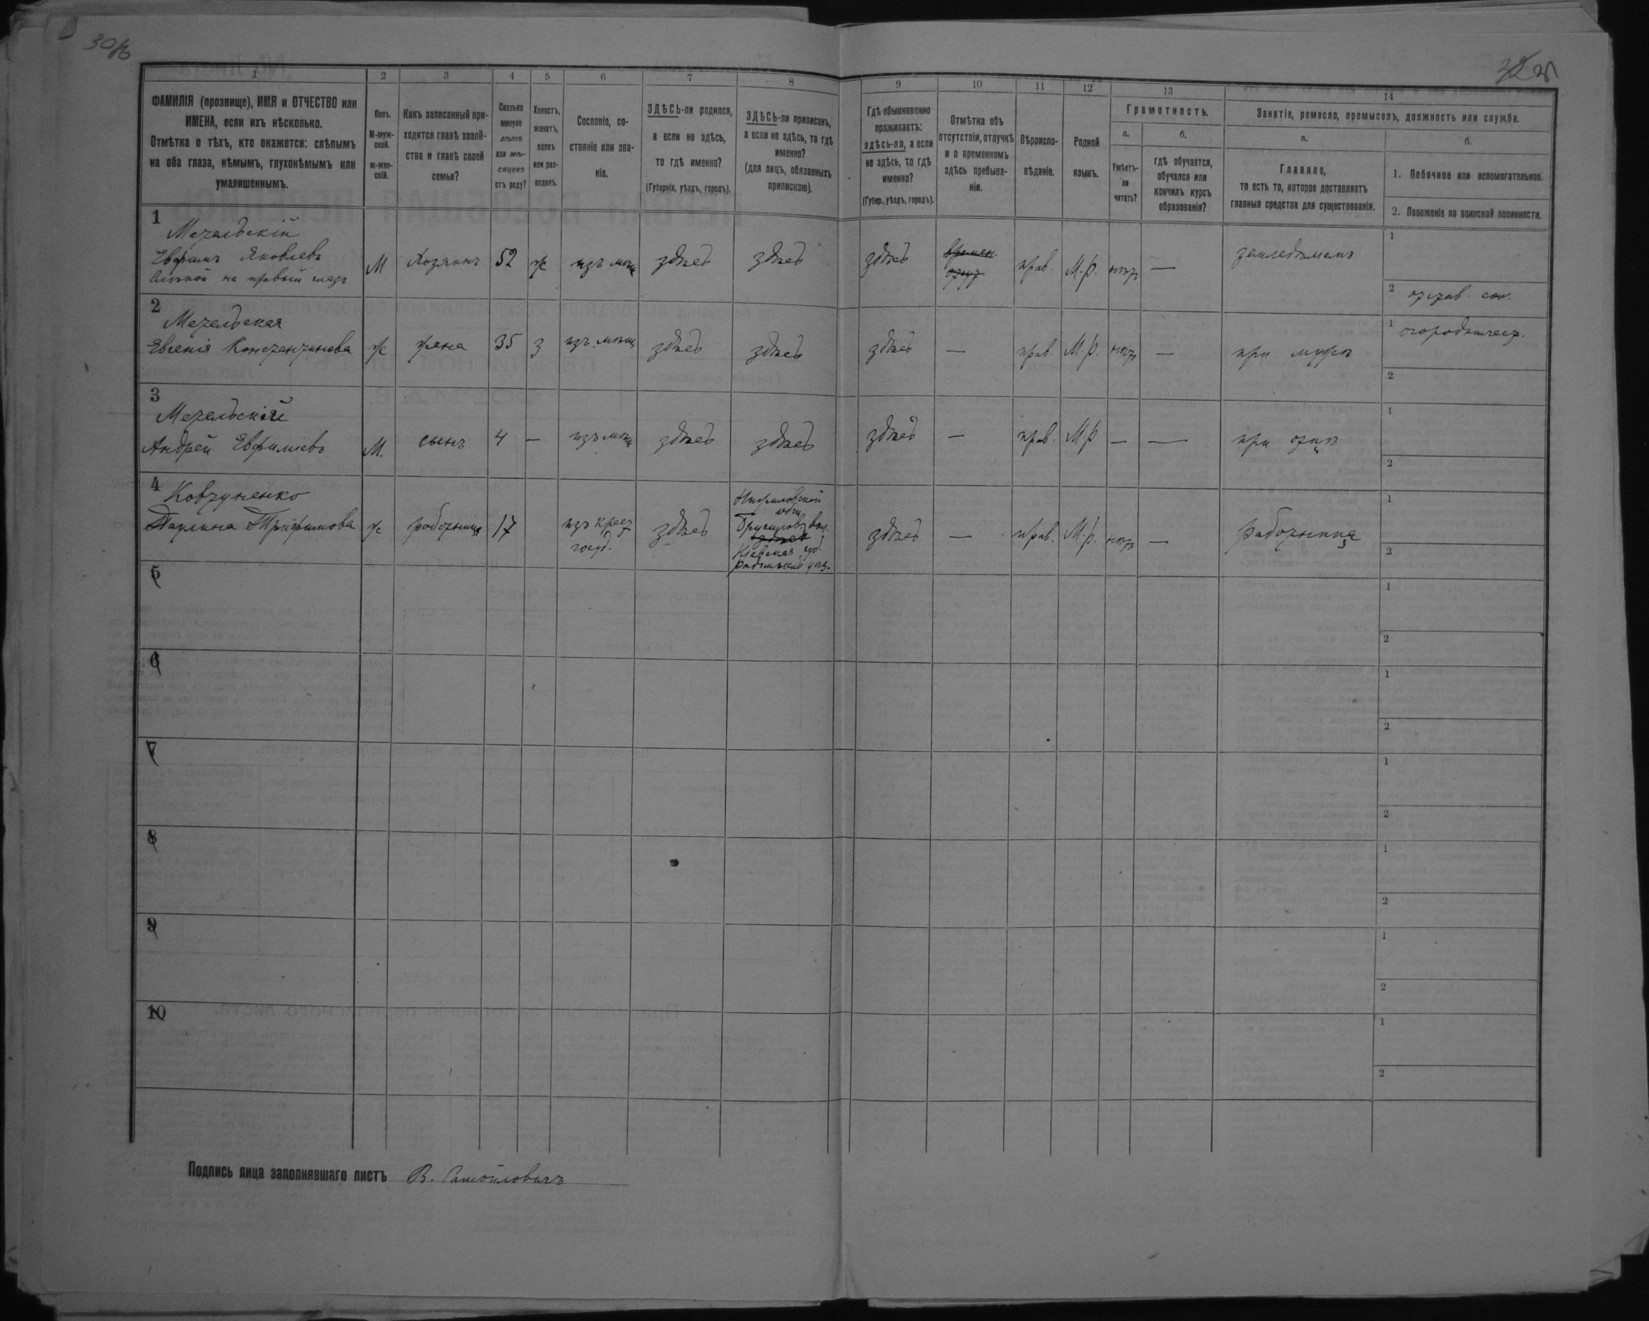 30/б
1
ФАМИЛІЯ (прозвище), ИМЯ и ОТЧЕСТВО или
ИМЕНА, если ихъ нѣсколько.
Отмѣтка о тѣхъ, кто окажется: слѣпымъ
на оба глаза, нѣмымъ, глухонѣмымъ или
умалишеннымъ.
2
Полъ.
М-муж-
ской.
ж-жен-
скій.
3
Какъ записанный при-
ходится главѣ хозяй-
ства и главѣ своей
семьи?
4
Сколько
минуло
лѣтъ
или мѣ-
сяцевъ
отъ роду?
5
Холостъ,
женатъ,
вдовъ
или раз-
веденъ.
6
Сословіе, со-
стояніе или зва-
ніе.
7
ЗДѢСЬ-ли родился,
а если не здѣсь,
то гдѣ именно?
(Губернія, уѣздъ, городъ).
8
ЗДѢСЬ-ли приписанъ,
а если не здѣсь, то гдѣ
именно?
(для лицъ, обязанныхъ
припискою).
9
Гдѣ обыкновенно
проживаетъ:
здѣсь-ли, а если
не здѣсь, то гдѣ
именно?
(Губер., уѣздъ, городъ).
10
Отмѣтка объ
отсутствіи, отлучкѣ
и о временномъ
здѣсь пребыва-
ніи.
11
Вѣроиспо-
вѣданіе.
12
Родной
языкъ.
13
Грамотность.
а.
Умѣетъ-
ли
читать?
б.
гдѣ обучается,
обучался или
кончилъ курсъ
образованія?
14
Занятіе, ремесло, промыселъ, должность или служба.
а.
Главное,
то есть то, которое доставляетъ
главныя средства для существованія.
б.
1. Побочное или вспомогательное.
2. Положеніе по воинской повинности.
1
Евфимъ Яковлевъ
М
Хозяинъ
52
ж
изъ мѣщ
здѣсь
здѣсь
здѣсь
прав.
М.р.
нѣтъ
—
1
2
2
Евгенія Константинова
ж
жена
35
з
изъ мѣщ
здѣсь
здѣсь
здѣсь
—
прав.
М.р.
нѣтъ
—
при мужѣ
1
2
3
Андрей Евфиміевъ
М.
сынъ
4
—
изъ мѣщ
здѣсь
здѣсь
здѣсь
—
прав.
М.р
—
—
при отцѣ
1
2
4
Ковтуненко
Трифимова
ж
работница
17
изъ крест
госуд.
здѣсь
Брусиловъ вол.
Кіевская губ
здѣсь
—
прав.
М.р.
нѣтъ
—
работница
1
2
5
1
2
6
1
2
7
1
2
8
1
2
9
1
2
10
1
2
Подпись лица заполнявшаго листъ В. Самойловичъ